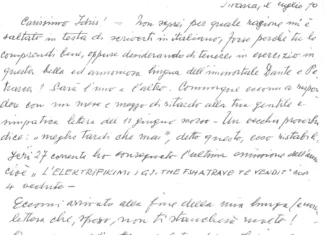 Tirana, 28 luglio, 70
Carissimo Idriz! — Non saprei per quale ragione mi è
saltato in testa di scriverti in italiano, forse perché tu lo
comprendi bene, oppure desiderando di tenerci in esercizio in
questa bella ed armoniosa lingua dell'immortale Dante e Pe-
trarca! Sarà l'uno e l'altro. Comunque eccomi a rispon-
dere con un mese e mezzo di ritardo alla tua gentile e
simpatica lettera del 11 giugno scorso. — Un vecchio proverbio
dice: "meglio tardi che mai", detto questo, esso ristabil
Ieri 27 corrente ho consegnato l'ultima
cioè "L'ELEKTRIFIKIMI I GJ. THE FSHATRAVE TE VENDIT"
4 vedute —
Eccomi arrivato alla fine della mia lunga
lettera che, spero, non ti stancherà molto!